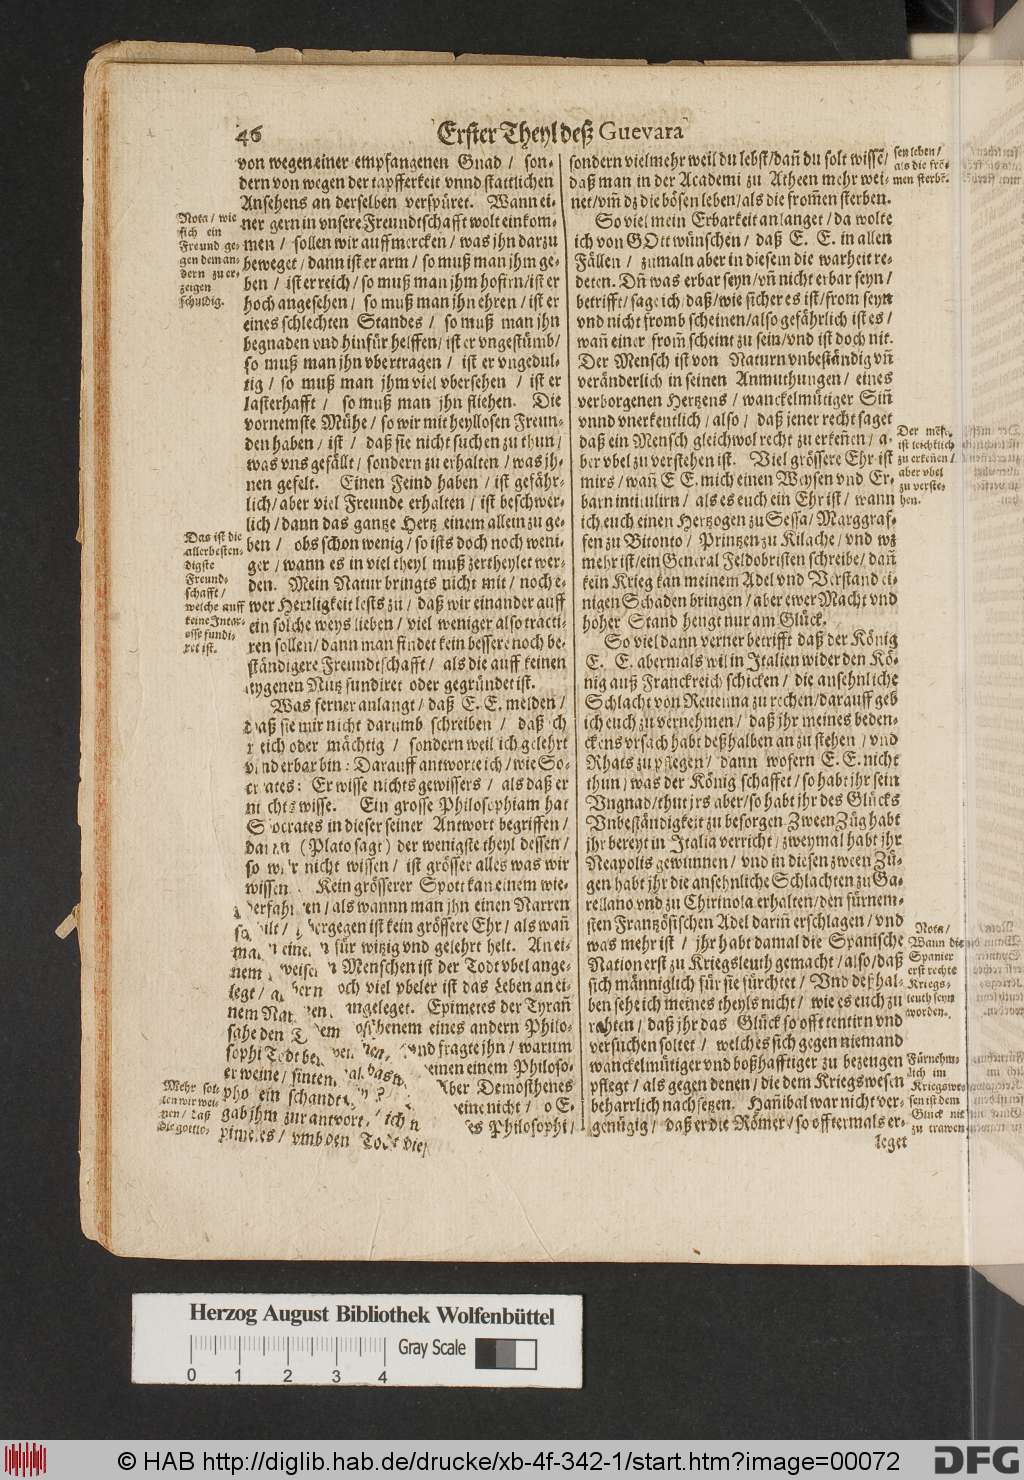 46
Erster Theyl deß Guevara
von wegen einer empfangenen Gnad / son-
dern von wegen der tapfferkeit vnnd stattlichen
Ansehens an derselben verspüret. Wann ei-
ner gern in vnsere Freundtschafft wolt einkom-
men / sollen wir auffmercken / was jhn darzu
beweget / dann ist er arm / so muß man jhm ge-
ben / ist er reich / so muß man jhm hofirn / ist er
hoch angesehen / so muß man jhn ehren / ist er
eines schlechten Standes / so muß man jhn
begnaden vnd hinfür helffen / ist er vngestümb /
so muß man jhn vbertragen / ist er vngedul-
tig / so muß man jhm viel vbersehen / ist er
lasterhafft / so muß man jhn fliehen. Die
vornemste Mühe / so wir mit heyllosen Freun-
den haben / ist / daß sie nicht suchen zu thun /
was vns gefällt / sondern zu erhalten / was jh-
nen gefelt. Einen Feind haben / ist gefähr-
lich / aber viel Freunde erhalten / ist beschwer-
lich / dann das gantze Hertz einem allein zu ge-
ben / obs schon wenig / so ists doch noch weni-
ger / wann es in viel theyl muß zertheylet wer-
den. Mein Natur bringts nicht mit / noch e-
wer Herrligkeit lests zu / daß wir einander auff
ein solche weys lieben / viel weniger also tracti-
ren sollen / dann man findet kein bessere noch be-
ständigere Freundtschafft / als die auff keinen
eygenen Nutz fundiret oder gegründet ist.
Was ferner anlangt / daß E. E. melden /
daß sie mir nicht darumb schreiben / daß ich
reich oder mächtig / sondern weil ich gelehrt
vnd erbar bin: Darauff antworte ich / wie So-
crates: Er wisse nichts gewissers / als daß er
nichts wisse. Ein grosse Philosophiam hat
Socrates in dieser seiner Antwort begriffen /
dann (Plato sagt) der wenigste theyl dessen /
so wir nicht wissen / ist grösser alles was wir
wissen. Kein grösserer Spott kan einem wie-
derfahren / als wannn man jhn einen Narren
hergegen ist kein grössere Ehr / als wañ
man einen für witzig vnd gelehrt helt. An ei-
nem weisen Menschen ist der Todt vbel ange-
legt / doch viel vbeler ist das Leben an ei-
nem angeleget. Epimetes der Tyrañ
sahe den eines andern Philo-
sophi Todt vnd fragte jhn / warum
er weine / einen einem Philoso-
pho ein schandt Aber Demosthenes
gab jhm zur antwort / ich weine nicht / o E-
pimetes / vmb den Todt des Philosophi /
Nota / wie
sich ein
Freund ge-
gen dem an-
dern zu er-
zeigen
schuldig.
Das ist die
allerbesten-
digste
Freund-
schafft /
welche auff
keine Inter-
esse fundi-
ret ist.
Mehr sol-
len wir wei-
nen / daß
die gottlo-
sondern vielmehr weil du lebst / dañ du solt wissẽ /
daß man in der Academi zu Atheen mehr wei-
net / vm̃ dz die bösen leben / als die from̃en sterben.
So viel mein Erbarkeit anlanget / da wolte
ich von GOtt wünschen / daß E. E. in allen
Fällen / zumaln aber in diesem die warheit re-
deten. Dñ was erbar seyn / vñ nicht erbar seyn /
betrifft / sage ich / daß / wie sicher es ist / from seyn
vnd nicht fromb scheinen / also gefährlich ist es /
wañ einer from̃ scheint zu sein / vnd ist doch nit.
Der Mensch ist von Naturn vnbeständig vñ
veränderlich in seinen Anmuthungen / eines
verborgenen Hertzens / wanckelmütiger Siñ
vnnd vnerkentlich / also / daß jener recht saget
daß ein Mensch gleichwol recht zu erkeñen / a-
ber vbel zu verstehen ist. Viel grössere Ehr ist
mirs / wañ E E. mich einen Weysen vnd Er-
barn intitulirn / als es euch ein Ehr ist / wann
ich euch einen Hertzogen zu Sessa / Marggraf-
fen zu Bitonto / Printzen zu Kilache / vnd wz
mehr ist / ein General Feldobristen schreibe / dañ
kein Krieg kan meinem Adel vnd Verstand ei-
nigen Schaden bringen / aber ewer Macht vnd
hoher Stand hengt nur am Glück.
So viel dann verner betrifft daß der König
E. E. abermals wil in Italien wider den Kö-
nig auß Franckreich schicken / die ansehnliche
Schlacht von Reuenna zu rechen / darauff geb
ich euch zu vernehmen / daß jhr meines beden-
ckens vrsach habt deßhalben an zu stehen / vnd
Rhats zu pflegen / dann wofern E. E. nicht
thun / was der König schaffet / so habt jhr sein
Vngnad / thut jrs aber / so habt jhr des Glücks
Vnbeständigkeit zu besorgen Zween Züg habt
jhr bereyt in Italia verricht / zweymal habt jhr
Neapolis gewunnen / vnd in diesen zween Zü-
gen habt jhr die ansehnliche Schlachten zu Ga-
rellano vnd zu Chirinola erhalten / den fürnem-
sten Frantzösischen Adel dariñ erschlagen / vnd
was mehr ist / jhr habt damal die Spanische
Nation erst zu Kriegsleuth gemacht / also / daß
sich männiglich für sie fürchtet / Vnd deßhal-
ben sehe ich meines theyls nicht / wie es euch zu
rahten / daß jhr das Glück so offt tentirn vnd
versuchen soltet / welches sich gegen niemand
wanckelmütiger vnd boßhafftiger zu bezeugen
pflegt / als gegen denen / die dem Kriegswesen
beharrlich nachsetzen. Hañibal war nicht ver-
genügig / daß er die Römer / so offtermals er-
leget
sen leben /
als die frõ-
men sterbẽ.
Der mẽsch
ist leichtlich
zu erkeñen /
aber vbel
zu verste-
hen.
Nota /
Wann die
Spanier
erst rechte
Kriegs-
leuth seyn
worden.
Fürnehm-
lich im
Kriegswe-
sen ist dem
Glück nit
zu trawen
Herzog August Bibliothek Wolfenbüttel
Gray Scale
0 1 2 3 4
© HAB http://diglib.hab.de/drucke/xb-4f-342-1/start.htm?image=00072
DFG